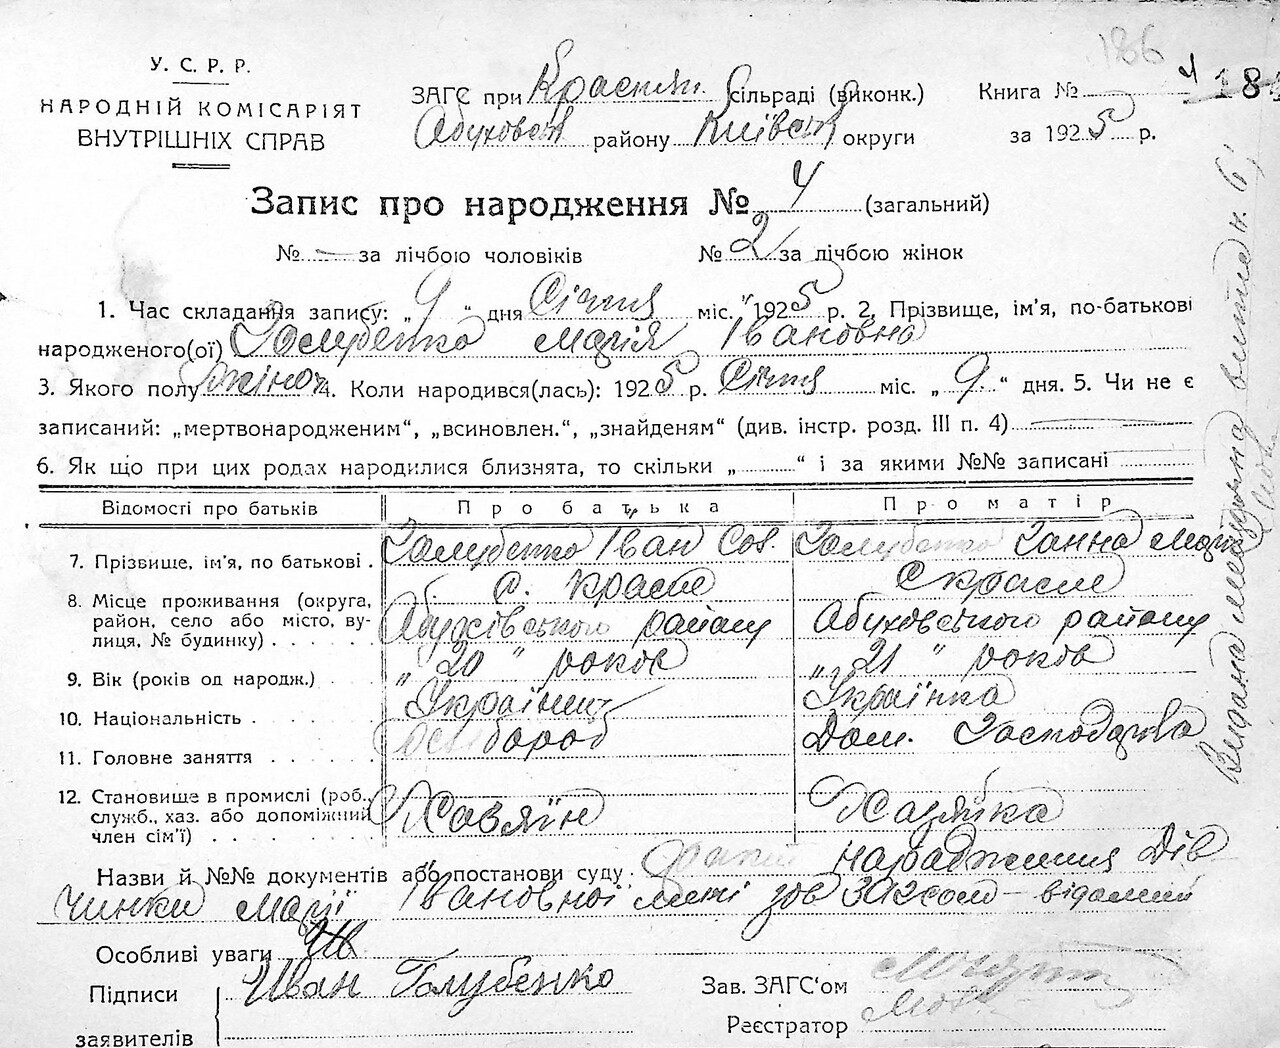 186
У. С. Р. Р.
НАРОДНІЙ КОМІСАРІЯТ
ВНУТРІШНІХ СПРАВ
ЗАГС при Краснян. сільраді (виконк.) Книга №
Абуховськ району Київськ округи за 1925 р.
Запис про народження № 4 (загальний)
№ — за лічбою чоловіків № 2 за лічбою жінок
1. Час складання запису: „ 9 “ дня Січня міс. 1925 р. 2, Прізвище, ім'я, по-батькові
народженого(ої) Голубенко Марія Івановна
3. Якого полу жіноч. 4. Коли народився(лась): 1925 р. Січня міс. „ 9 “ дня. 5. Чи не є
записаний: „мертвонародженим“, „всиновлен.“, „знайденям“ (див. інстр. розд. III п. 4)
6. Як що при цих родах народилися близнята, то скільки „ “ і за якими №№ записані
Відомості про батьків Про батька Про матір
7. Прізвище, ім'я, по батькові . Голубенко Іван Голубенко Ганна
8. Місце проживання (округа, район, село або місто, вулиця, № будинку) . с. Красне Абухівського району с Красне Абуховського району
9. Вік (років од народж.) . „ 20 “ років „ 21 “ років
10. Національність . Українець Українка
11. Головне заняття . Хлібороб Дом. Господарка
12. Становище в промислі (роб., служб., хаз. або допоміжний член сім'ї) . Хазяїн Хазяйка
Назви й №№ документів або постанови суду: народження Дів
чинки Марії Івановної мені зав ЗАГсом — відомий
Особливі уваги
Підписи заявителів Иван Голубенко
Зав. ЗАГС'ом
Реєстратор